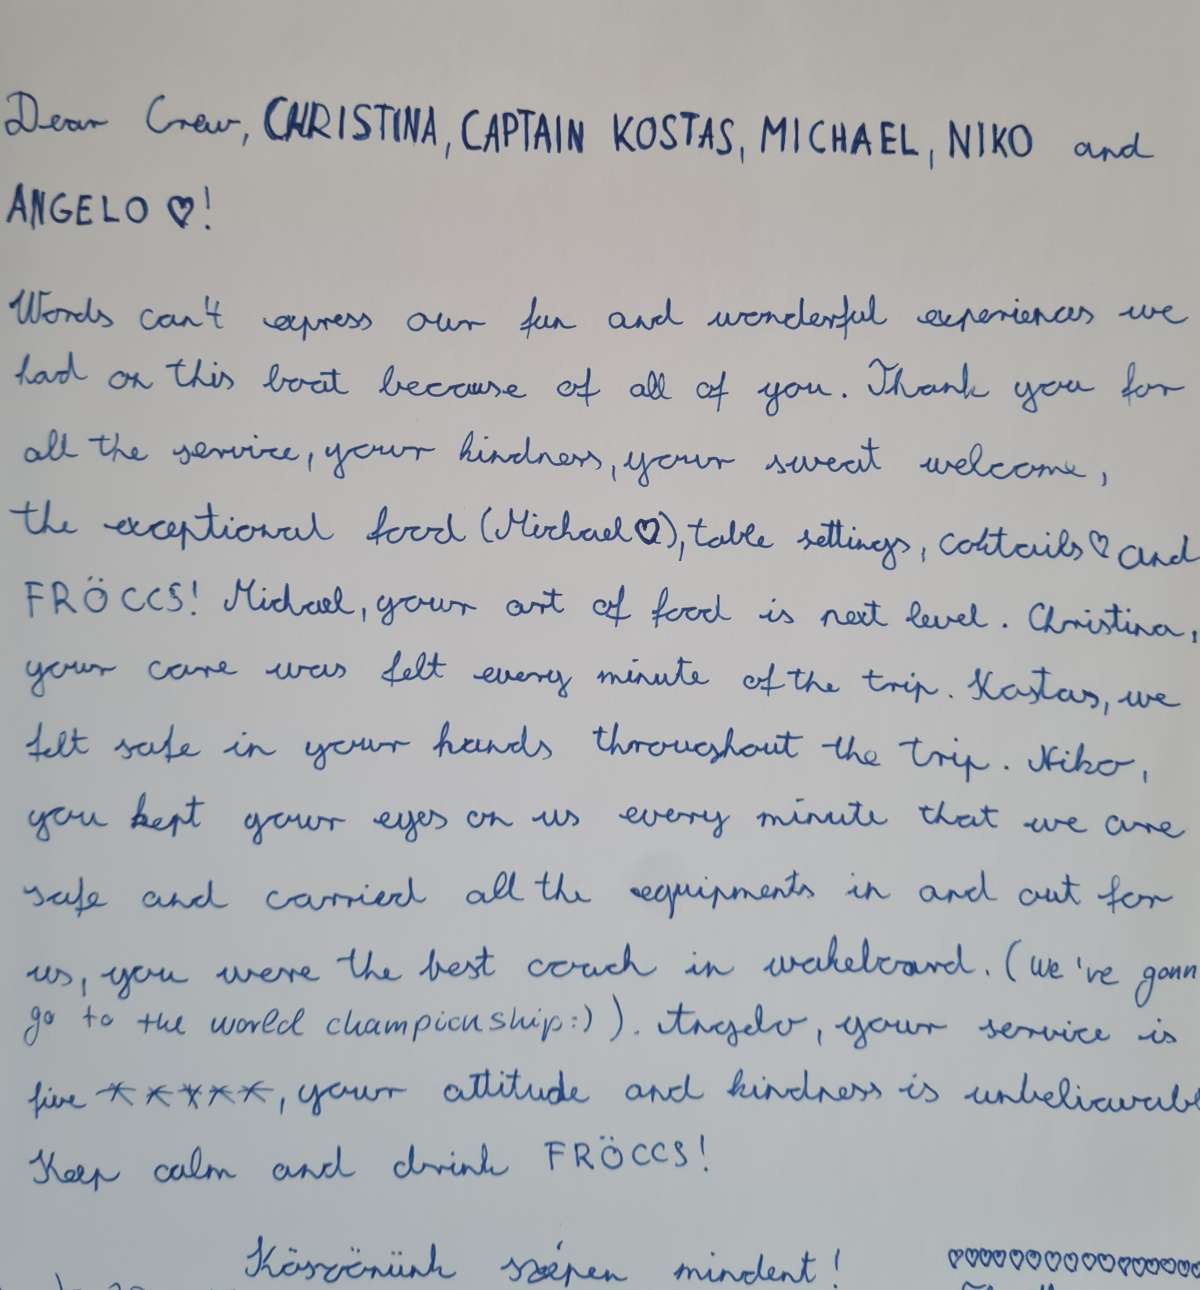 Dear Crew, CHRISTINA, CAPTAIN KOSTAS, MICHAEL, NIKO and
ANGELO ♡!
Words can't express our fun and wonderful experiences we
had on this boat because of all of you. Thank you for
all the service, your kindness, your sweat welcome,
the exceptional food (Michael♡), table settings, coktails♡ and
FRÖCCS! Michael, your art of food is next level. Christina,
your care was felt every minute of the trip. Kostas, we
felt safe in your hands throughout the trip. Niko,
you kept your eyes on us every minute that we are
safe and carried all the equipments in and out for
us, you were the best coach in wakeboard. (We've gonn
go to the world championship:)). Angelo, your service is
five *****, your attitude and kindness is unbeliavabl
Keep calm and drink FRÖCCS!
Köszönünk szépen mindent! ♡♡♡♡♡♡♡♡♡♡♡♡♡♡♡